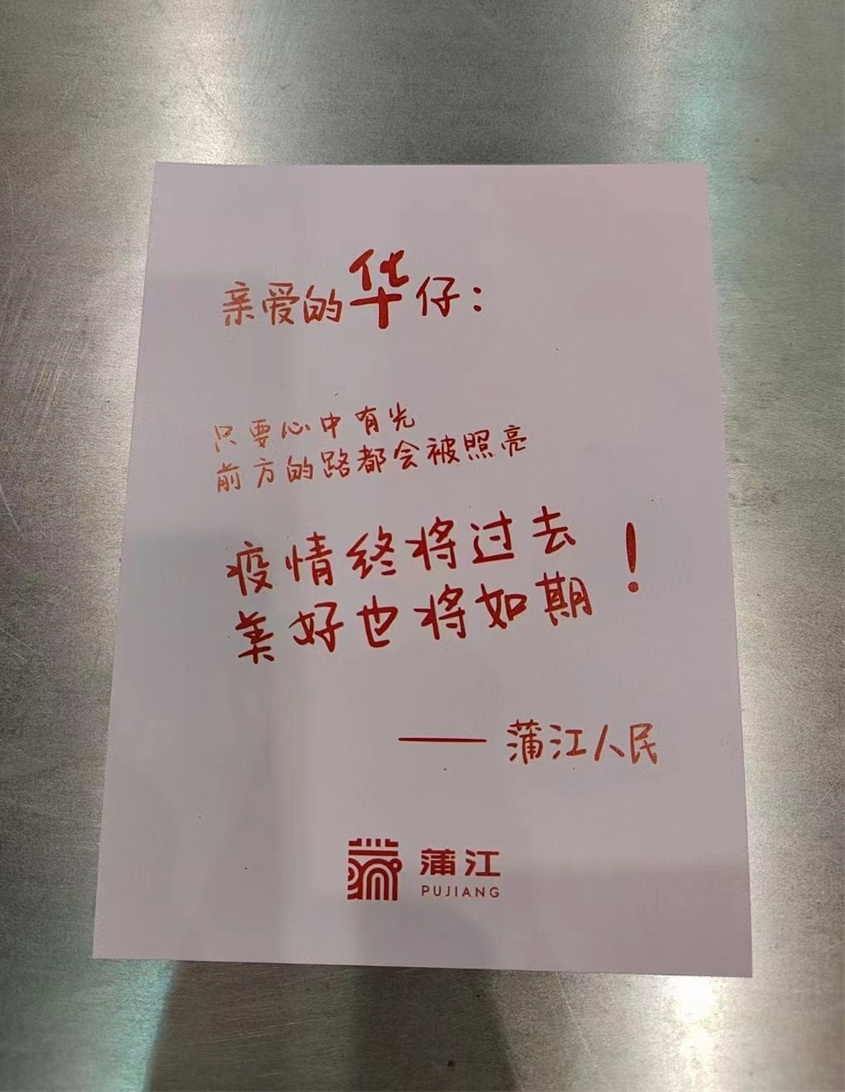 亲爱的华仔：
只要心中有光
前方的路都会被照亮
疫情终将过去
美好也将如期！
——蒲江人民
蒲江
PUJIANG